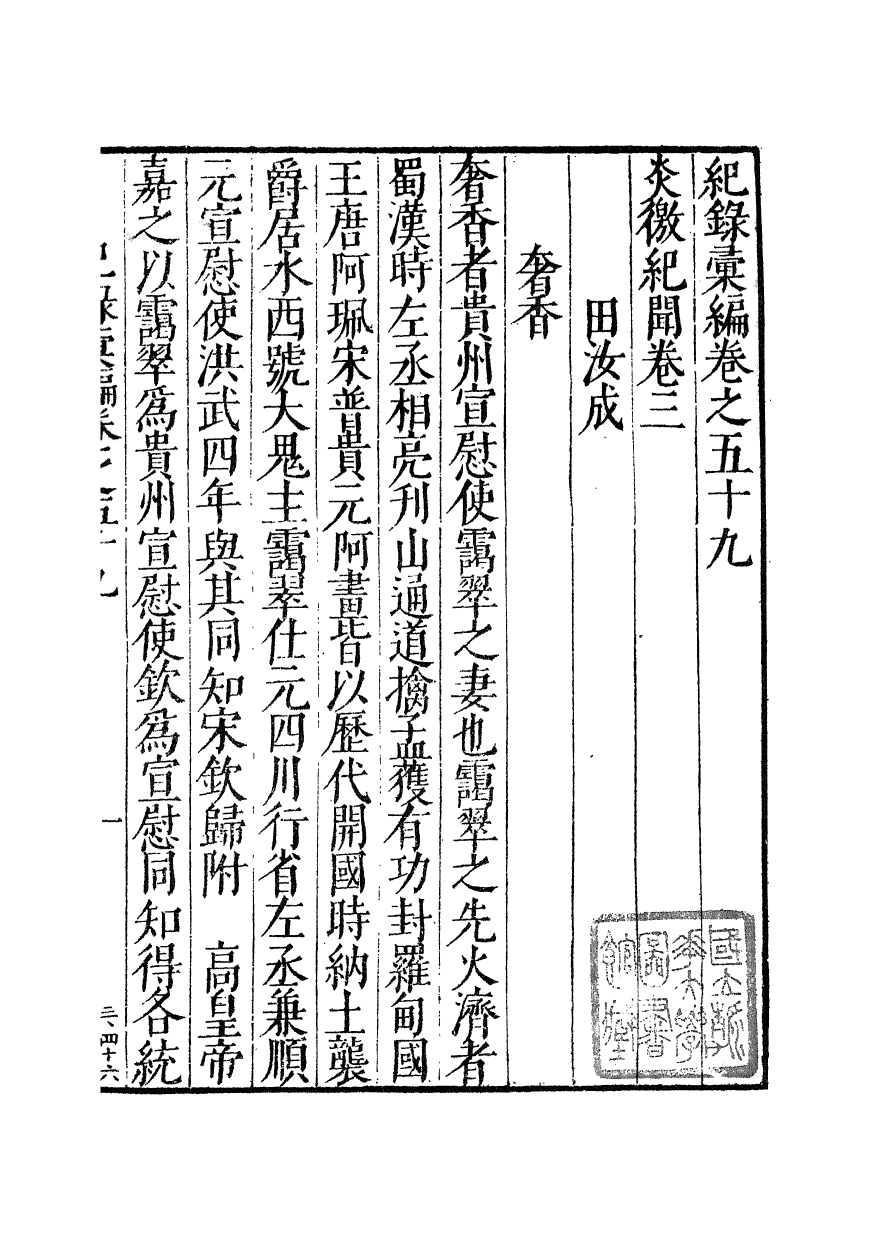 紀錄彙編卷之五十九
炎徼紀聞卷三
田汝成
奢香
奢香者貴州宣慰使靄翠之妻也靄翠之先火濟者
蜀漢時左丞相亮刋山通道擒孟獲有功封羅甸國
王唐阿珮宋普貴元阿畫皆以歷代開國時納土襲
爵居水西號大鬼主靄翠仕元四川行省左丞兼順
元宣慰使洪武四年與其同知宋欽歸附　高皇帝
嘉之以靄翠爲貴州宣慰使欽爲宣慰同知得各統
一
三、四十六